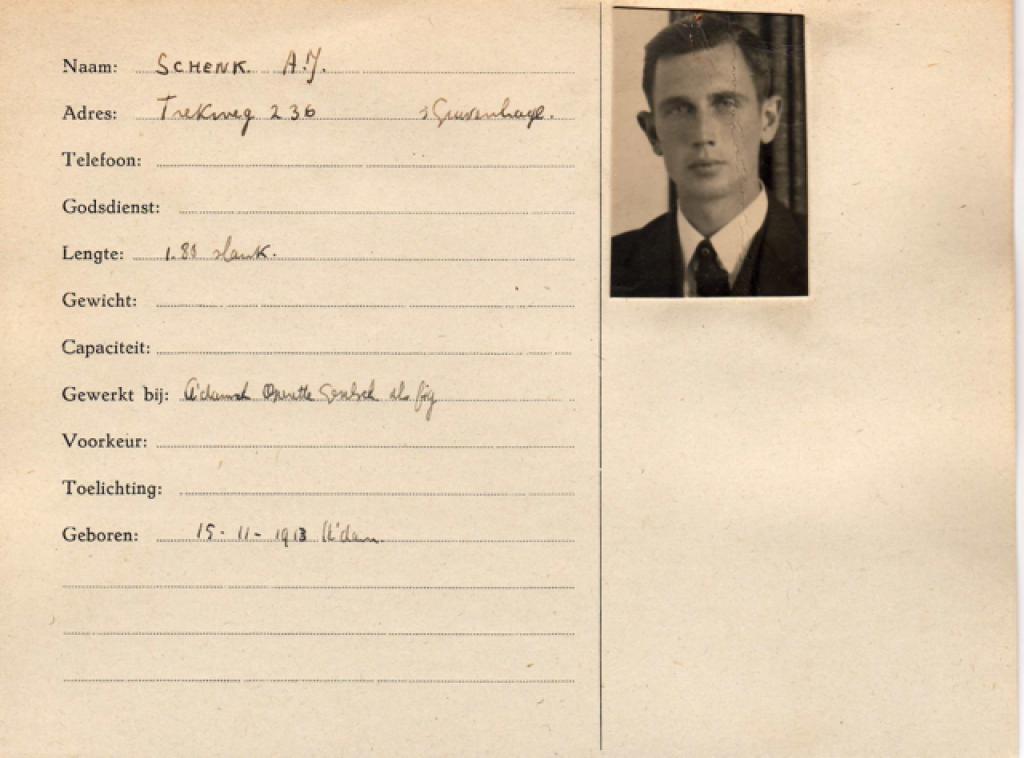 Naam: SCHENK. A.J.
Adres: Trekweg 236 sGravenhage.
Telefoon:
Godsdienst:
Lengte: 1.80 slank.
Gewicht:
Capaciteit:
Gewerkt bij: A'damsch Operette Gezelsch als fig
Voorkeur:
Toelichting:
Geboren: 15-11-1913 A'dam.